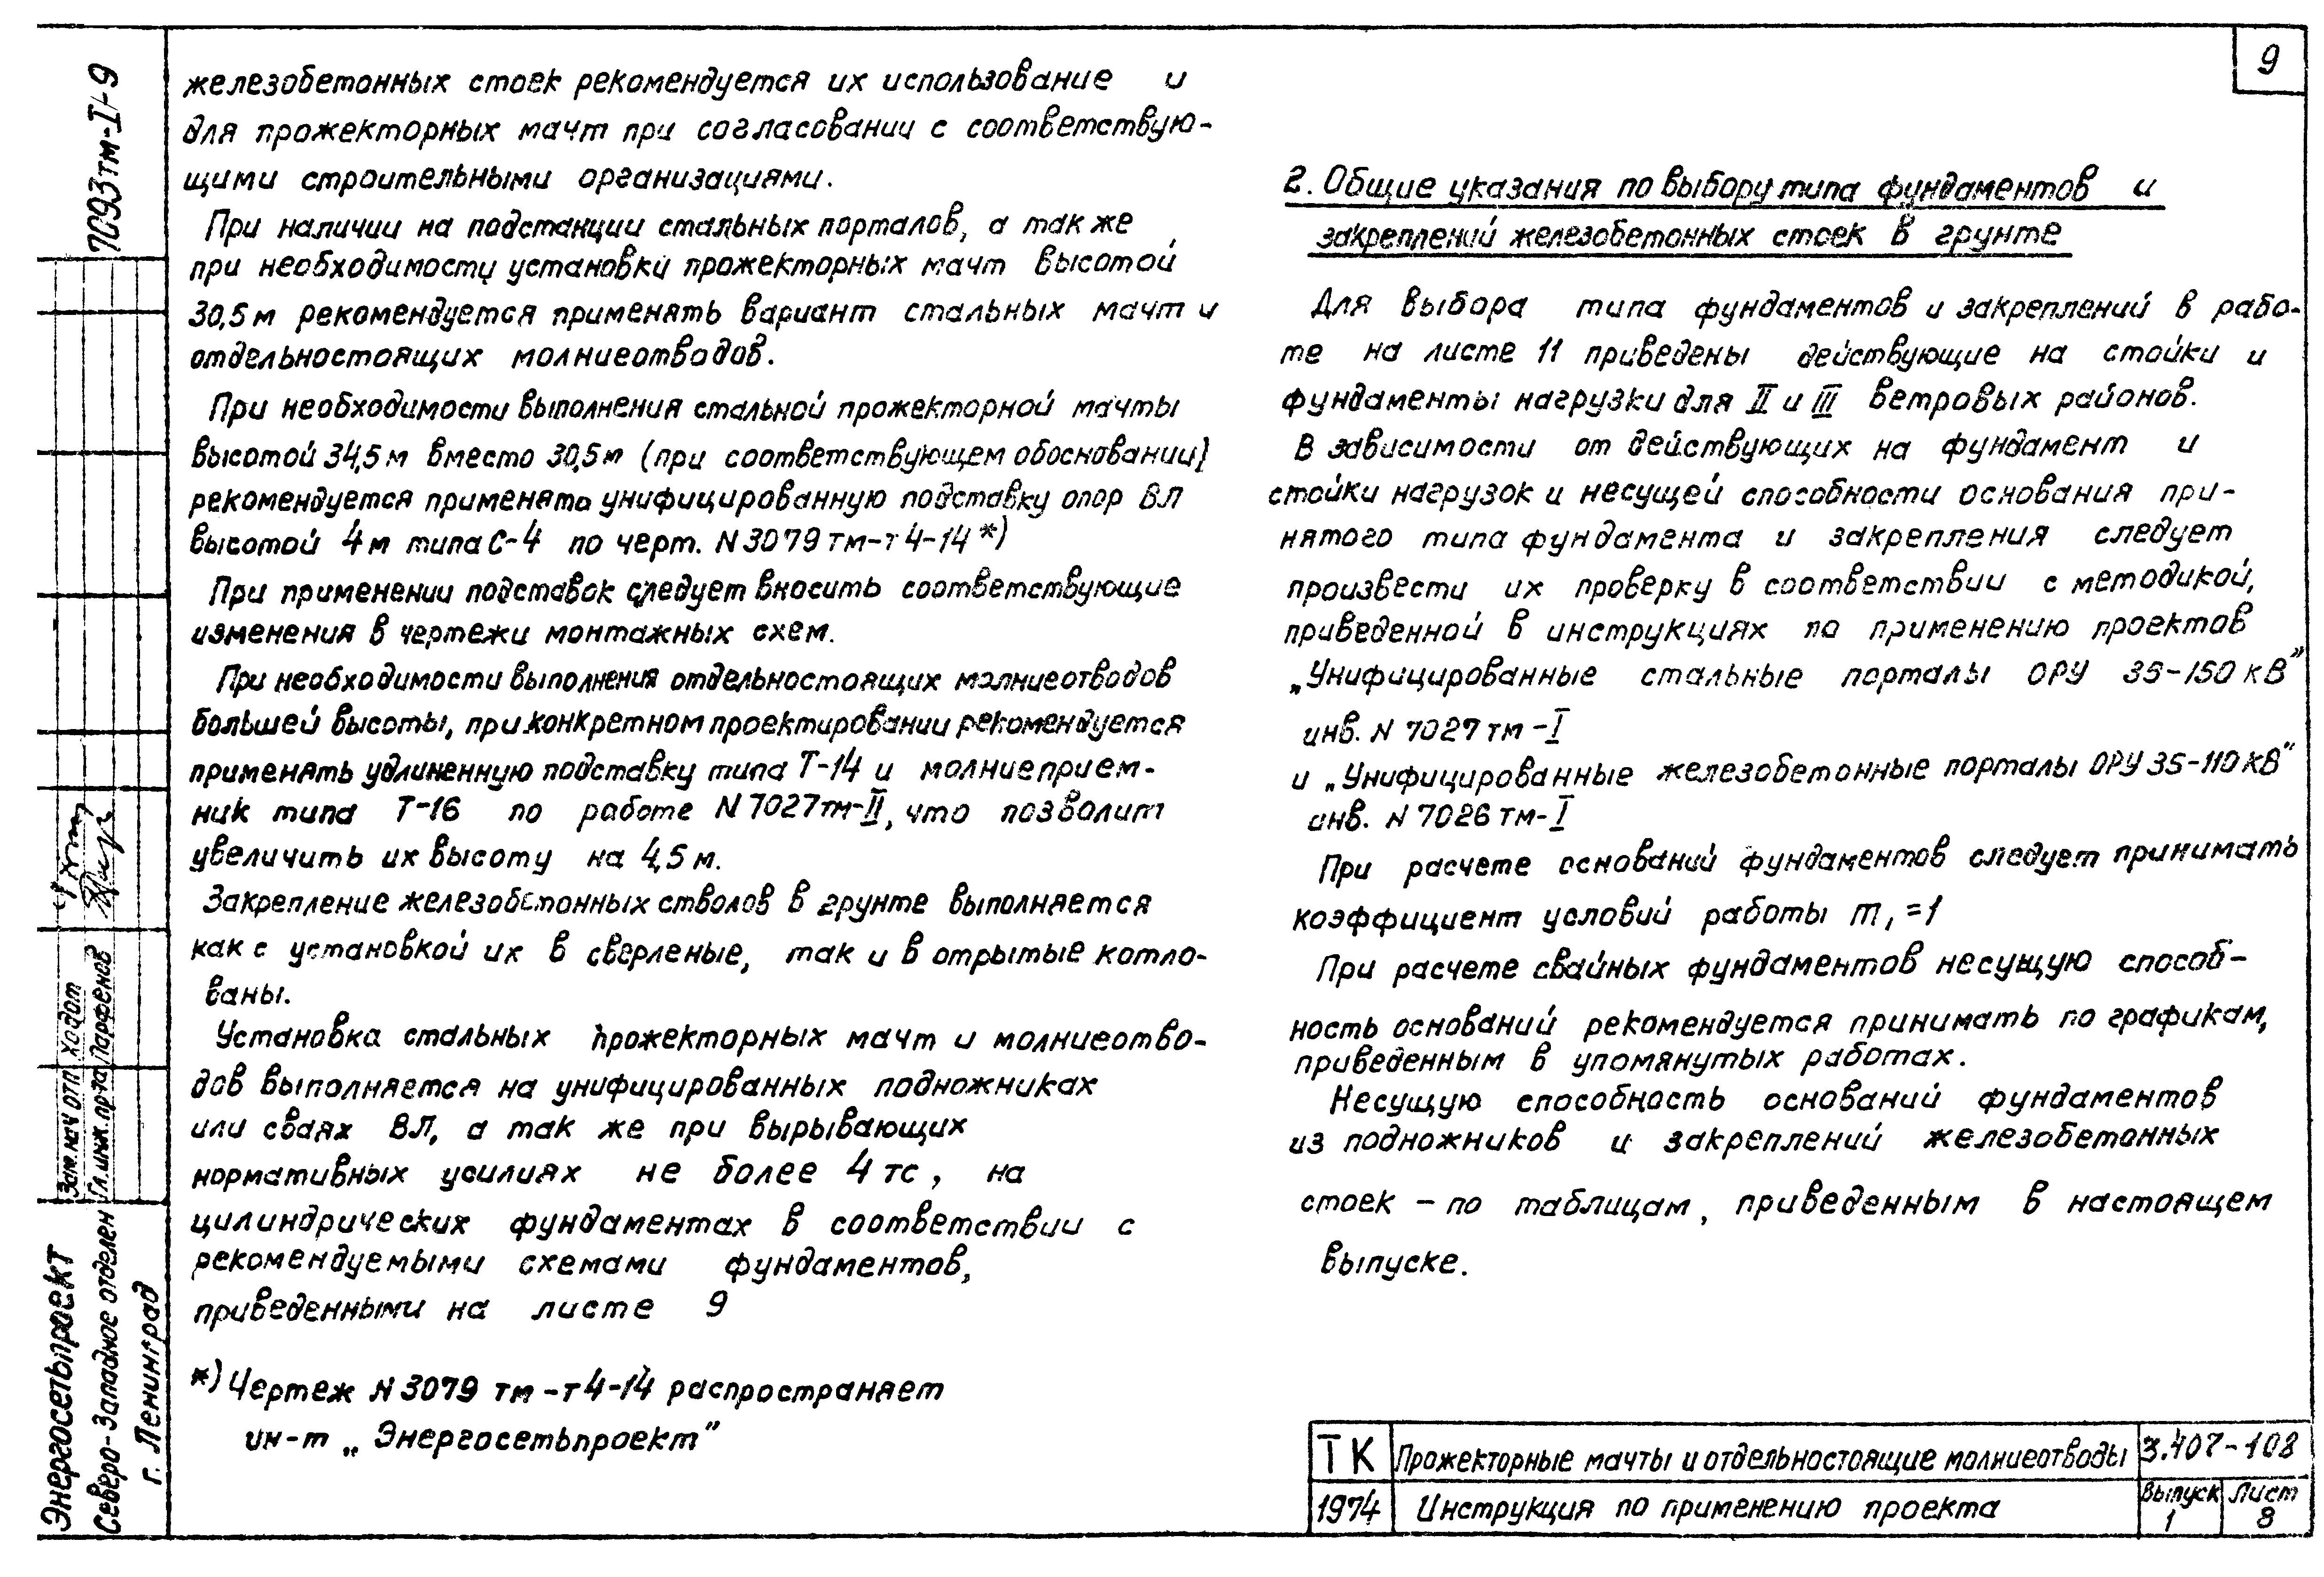 9
железобетонных стоек рекомендуется их использование и
для прожекторных мачт при согласовании с соответствую-
щими строительными организациями.
При наличии на подстанции стальных порталов, а так же
при необходимости установки прожекторных мачт высотой
30,5м рекомендуется применять вариант стальных мачт и
отдельностоящих молниеотводов.
При необходимости выполнения стальной прожекторной мачты
высотой 34,5м вместо 30,5м (при соответствующем обосновании)
рекомендуется применять унифицированную подставку опор ВЛ
высотой 4м типа С-4 по черт. N3079тм-т4-14*)
При применении подставок следует вносить соответствующие
изменения в чертежи монтажных схем.
При необходимости выполнения отдельностоящих молниеотводов
большей высоты, при конкретном проектировании рекомендуется
применять удлиненную подставку типа Т-14 и молниеприем-
ник типа Т-16 по работе N7027тм-II, что позволит
увеличить их высоту на 4,5м.
Закрепление железобетонных стволов в грунте выполняется
как с установкой их в сверленые, так и в отрытые котло-
ваны.
Установка стальных прожекторных мачт и молниеотво-
дов выполняется на унифицированных подножниках
или сваях ВЛ, а так же при вырывающих
нормативных усилиях не более 4тс, на
цилиндрических фундаментах в соответствии с
рекомендуемыми схемами фундаментов,
приведенными на листе 9
*) Чертеж N3079 тм-т4-14 распространяет
ин-т „Энергосетьпроект"
2. Общие указания по выбору типа фундаментов и
закреплений железобетонных стоек в грунте
Для выбора типа фундаментов и закреплений в рабо-
те на листе 11 приведены действующие на стойки и
фундаменты нагрузки для II и III ветровых районов.
В зависимости от действующих на фундамент и
стойки нагрузок и несущей способности основания при-
нятого типа фундамента и закрепления следует
произвести их проверку в соответствии с методикой,
приведенной в инструкциях по применению проектов
„Унифицированные стальные порталы ОРУ 35-150кВ"
инв. N 7027тм-I
и „Унифицированные железобетонные порталы ОРУ 35-110кВ"
инв. N 7026тм-I
При расчете оснований фундаментов следует принимать
коэффициент условий работы m₁=1
При расчете свайных фундаментов несущую способ-
ность оснований рекомендуется принимать по графикам,
приведенным в упомянутых работах.
Несущую способность оснований фундаментов
из подножников и закреплений железобетонных
стоек - по таблицам, приведенным в настоящем
выпуске.
7093тм-I-9
Зам.нач ОТП Ходот
Гл.инж.пр-та Парфенов
Энергосетьпроект
Северо-Западное отделен
г. Ленинград
ТК Прожекторные мачты и отдельностоящие молниеотводы 3.407-108
1974 Инструкция по применению проекта Выпуск 1 Лист 8